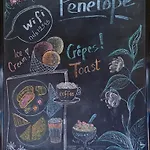 Penelope
wifi
Ice
Cream!
Crêpes!
Toast
coffee